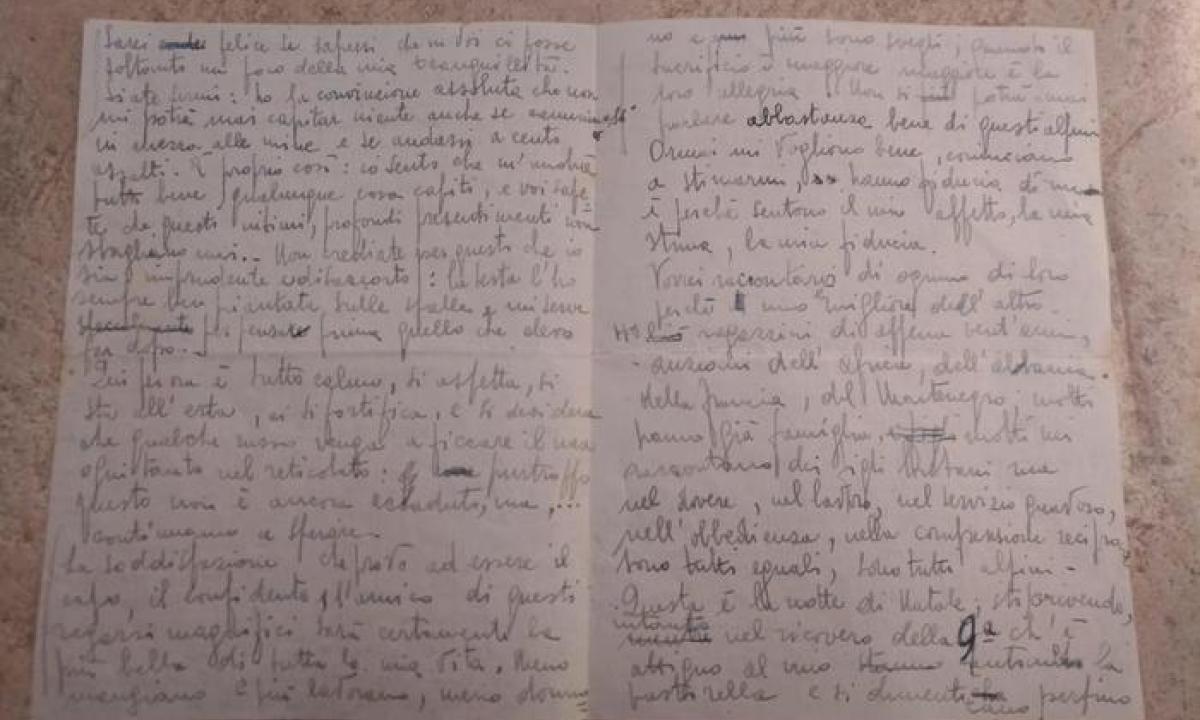 Sarei felice se sapessi che in voi ci fosse
soltanto un poco della mia tranquillità.
Siate sereni: ho la convinzione assoluta che non
mi potrà mai capitar niente anche se
in mezzo alle mine e se andassi a cento
assalti. È proprio così: io sento che m'andrà
tutto bene, qualunque cosa capiti, e voi sape-
te che questi intimi, profondi presentimenti non
sbagliano mai.. Non crediate per questo che io
sia imprudente : la testa l'ho
sempre ben piantata sulle spalle e mi serve
per pensare prima quello che devo
far dopo..-
Qui per ora è tutto calmo, si aspetta, si
sta all'erta, ci si fortifica, e si desidera
che qualche russo venga a ficcare il naso
ogni tanto nel reticolato: purtroppo
questo non è ancora accaduto, ma,...
continuiamo a sperare.
La soddisfazione che provo ad essere il
capo, il confidente, l'amico di questi
ragazzi magnifici sarà certamente la
più bella di tutta la mia vita. Meno
mangiano e più lavorano, meno dormo
no e più sono svegli; quando il
sacrificio è maggiore maggiore è la
loro allegria. Non si potrà mai
parlare abbastanza bene di questi alpini
Ormai mi vogliono bene, cominciano
a stimarmi, hanno fiducia di me
è perchè sentono il mio affetto, la mia
stima, la mia fiducia.
Vorrei raccontarvi di ognuno di loro
perchè uno è migliore dell'altro.
Ho ragazzini di appena vent'anni,
anziani dell'Africa, dell'Albania.
della Francia, del Montenegro; molti
hanno già famiglia, molti mi
raccontano dei figli lontani ma
nel dovere, nel lavoro, nel servizio gravoso,
nell'obbedienza, nella comprensione recipro
sono tutti eguali, sono tutti alpini -
Questa è la notte di Natale; sto scrivendo,
intanto nel ricovero della 9ª ch'è
attiguo al mio cantano la
pastorella e si perfino